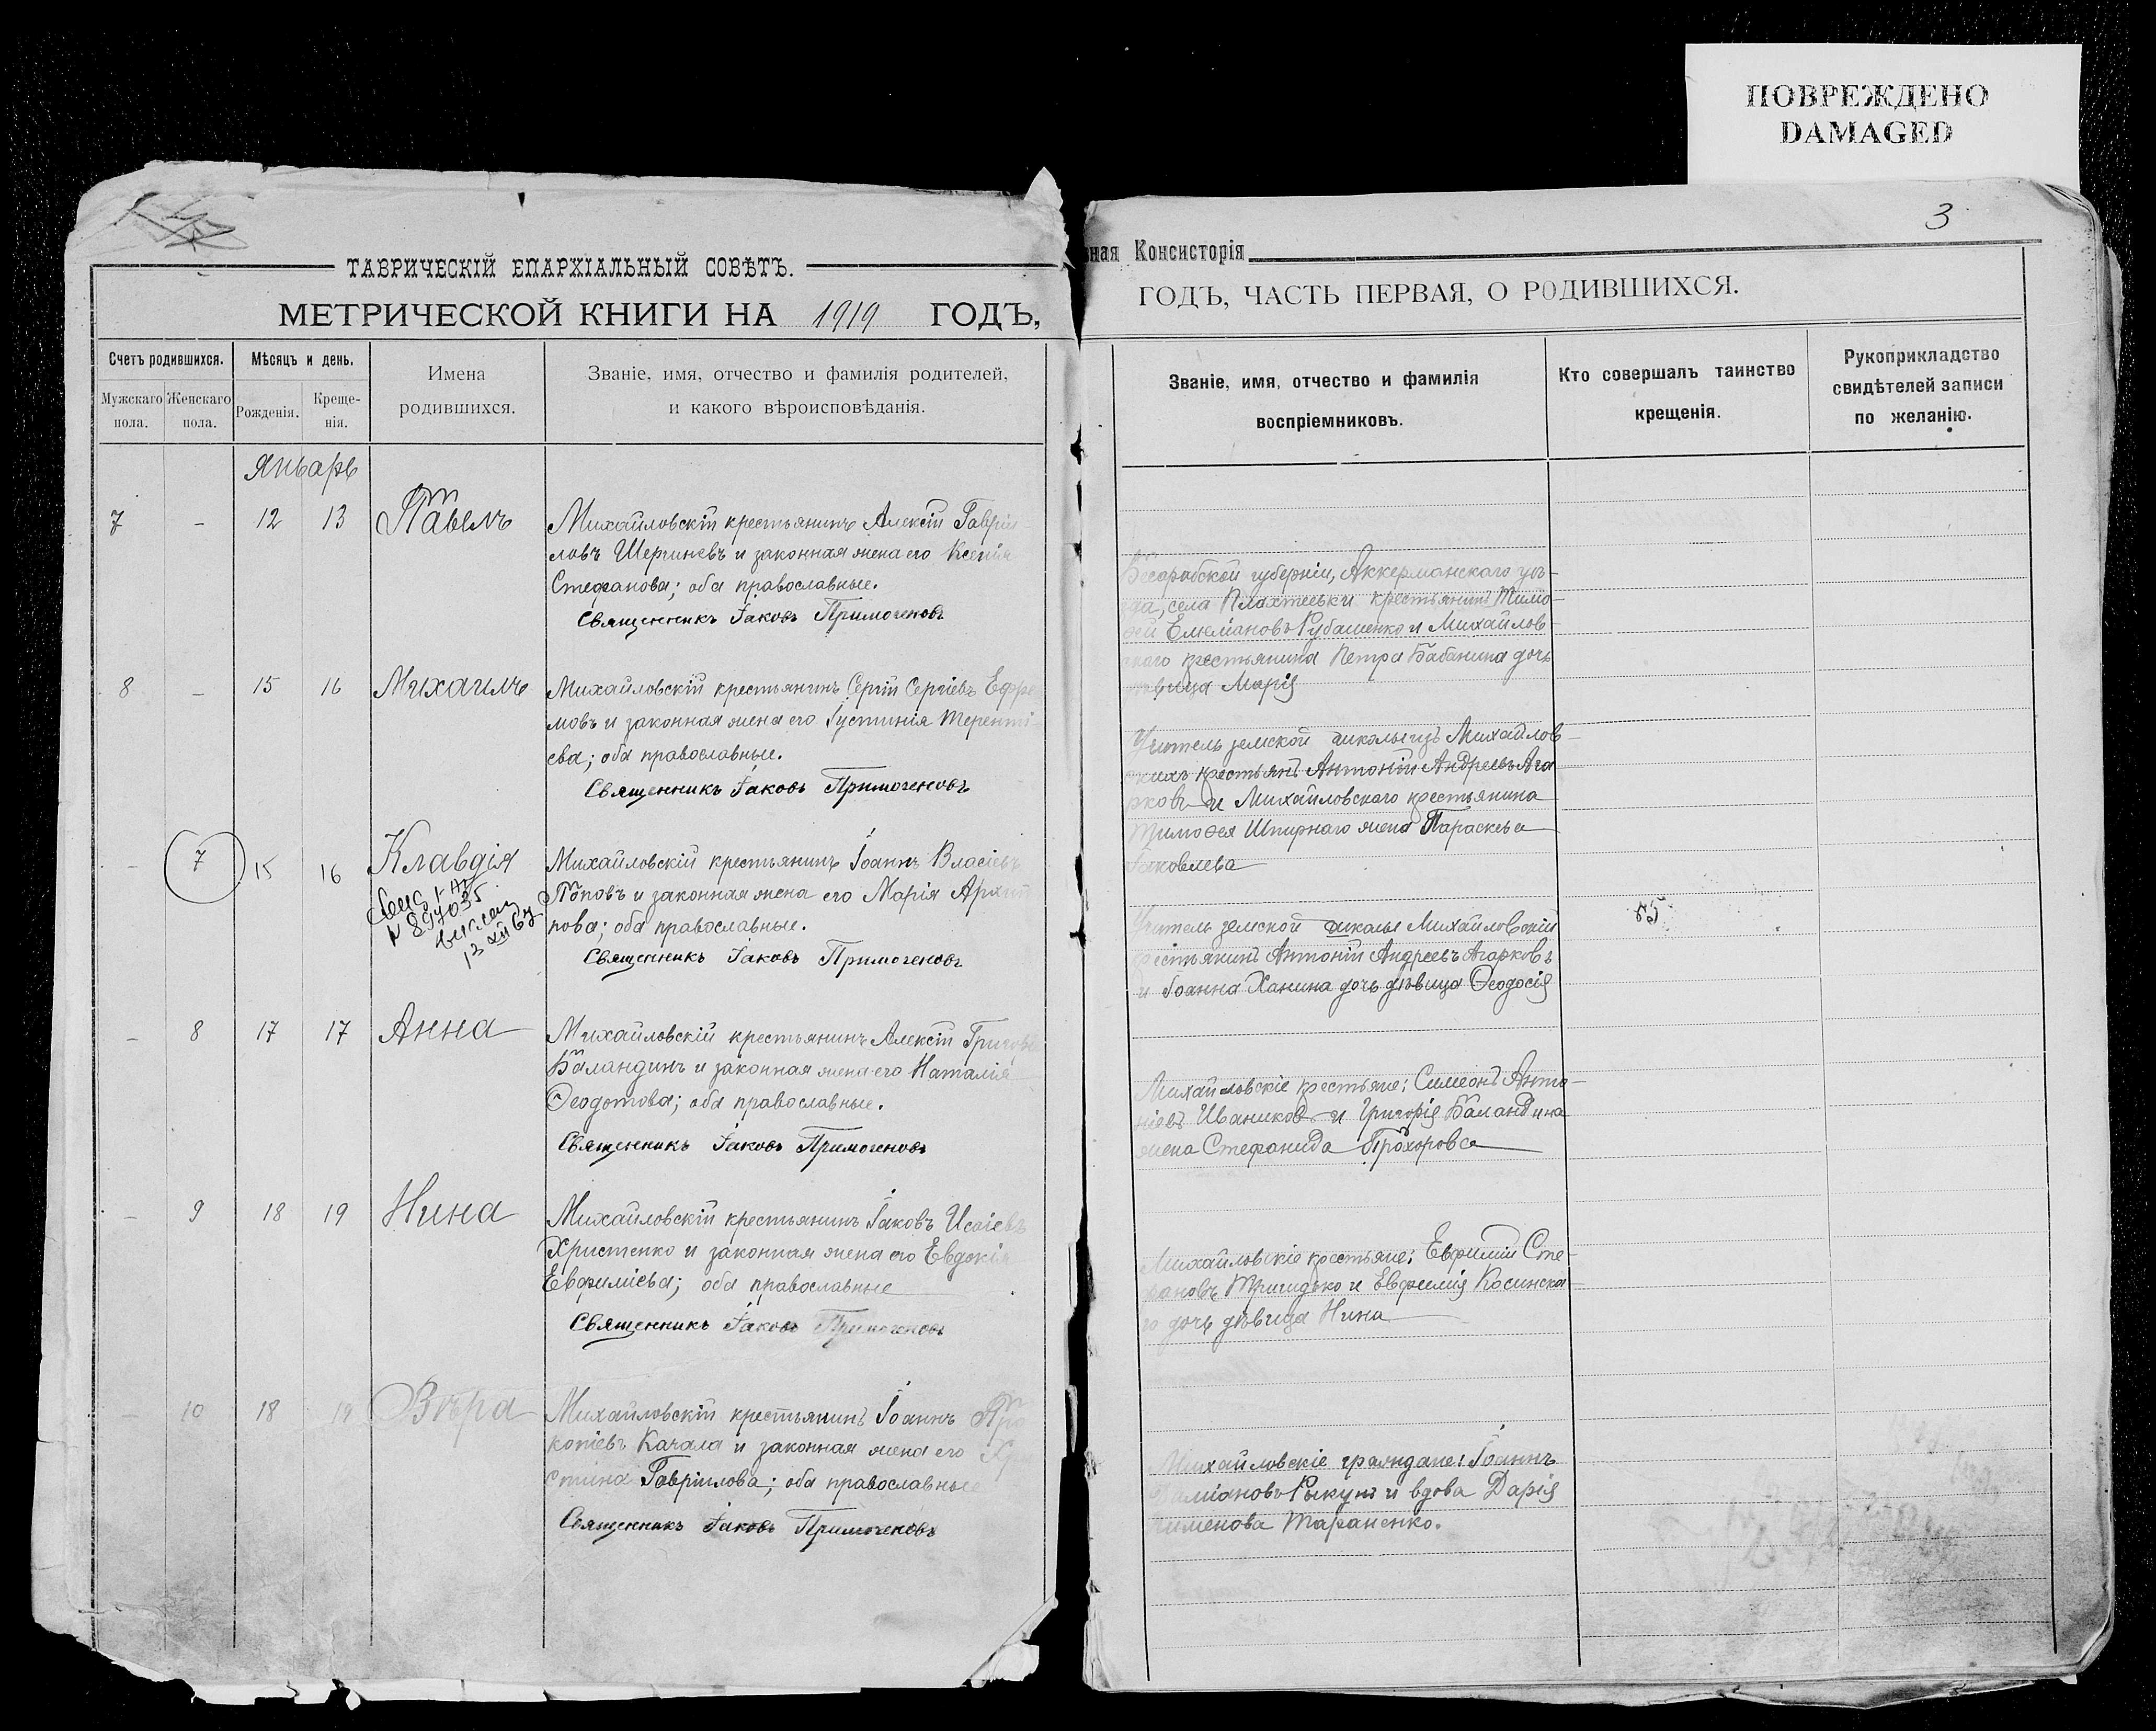 ПОВРЕЖДЕНО
DAMAGED
ТАВРИЧЕСКІЙ ЕПАРХІАЛЬНЫЙ СОВѢТЪ.
МЕТРИЧЕСКОЙ КНИГИ НА 1919 ГОДЪ,
Счетъ родившихся.
Мѣсяцъ и день.
Имена
родившихся.
Званіе, имя, отчество и фамилія родителей,
и какого вѣроисповѣданія.
Мужскаго
пола.
Женскаго
пола.
Рожденія.
Креще-
нія.
Январь
7 - 12 13 Павелъ
Михайловскій крестьянинъ Алексій Гаврі
ловъ Шергиневъ и законная жена его Ксенія
Стефанова; оба православные.
Священникъ Іаковъ Примогеновъ
8 - 15 16 Михаилъ
Михайловскій крестьянинъ Сергій Сергіевъ Ефре
мовъ и законная жена его Іустинія Теренті-
ева; оба православные.
Священникъ Іаковъ Примогеновъ
- 7 15 16 Клавдія
N 897035
Михайловскій крестьянинъ Іоаннъ Власіевъ
Поповъ и законная жена его Марія Архип
пова; оба православные.
Священникъ Іаковъ Примогеновъ
- 8 17 17 Анна
Михайловскій крестьянинъ Алексій Григорь
Баландинъ и законная жена его Наталія
Ѳеодотова; оба православные.
Священникъ Іаковъ Примогеновъ
- 9 18 19 Нина
Михайловскій крестьянинъ Іаковъ Исаіевъ
Христенко и законная жена его Евдокія
Евфиміева; оба православные
Священникъ Іаковъ Примогеновъ
- 10 18 19 Вѣра
Михайловскій крестьянинъ Іоаннъ Про
копіевъ Качала и законная жена его Хр
стина Гавріилова; оба православные
Священникъ Іаковъ Примогеновъ
3
ная Консисторія
ГОДЪ, ЧАСТЬ ПЕРВАЯ, О РОДИВШИХСЯ.
Званіе, имя, отчество и фамилія
воспріемниковъ.
Кто совершалъ таинство
крещенія.
Рукоприкладство
свидѣтелей записи
по желанію.
Бесарабской губерніи, Аккерманскаго уѣ-
зда, села Плахтеевки крестьянинъ Тимо-
ѳей Емеліановъ Рубашенко и Михайлов-
скаго крестьянина Петра Бабанина дочь
дѣвица Марія
Учитель земской школы изъ Михайлов-
скихъ крестьянъ Антоній Андреевъ Ага
рковъ и Михайловскаго крестьянина
Тимоѳея Шпирнаго жена Параскева
Іаковлева
Учитель земской школы Михайловскій
крестьянинъ Антоній Андреевъ Агарковъ
и Іоанна Ханина дочь дѣвица Ѳеодосія
Михайловскіе крестьяне: Симеонъ Анто-
ніевъ Иваниковъ и Григорія Баландина
жена Стефанида Прохорова
Михайловскіе крестьяне: Евфимій Сте-
фановъ Тригидько и Евфимія Косинска
го дочь дѣвица Нина
Михайловскіе граждане: Іоаннъ
Даміановъ Рыкунъ и вдова Дарія
именова Тараненко.